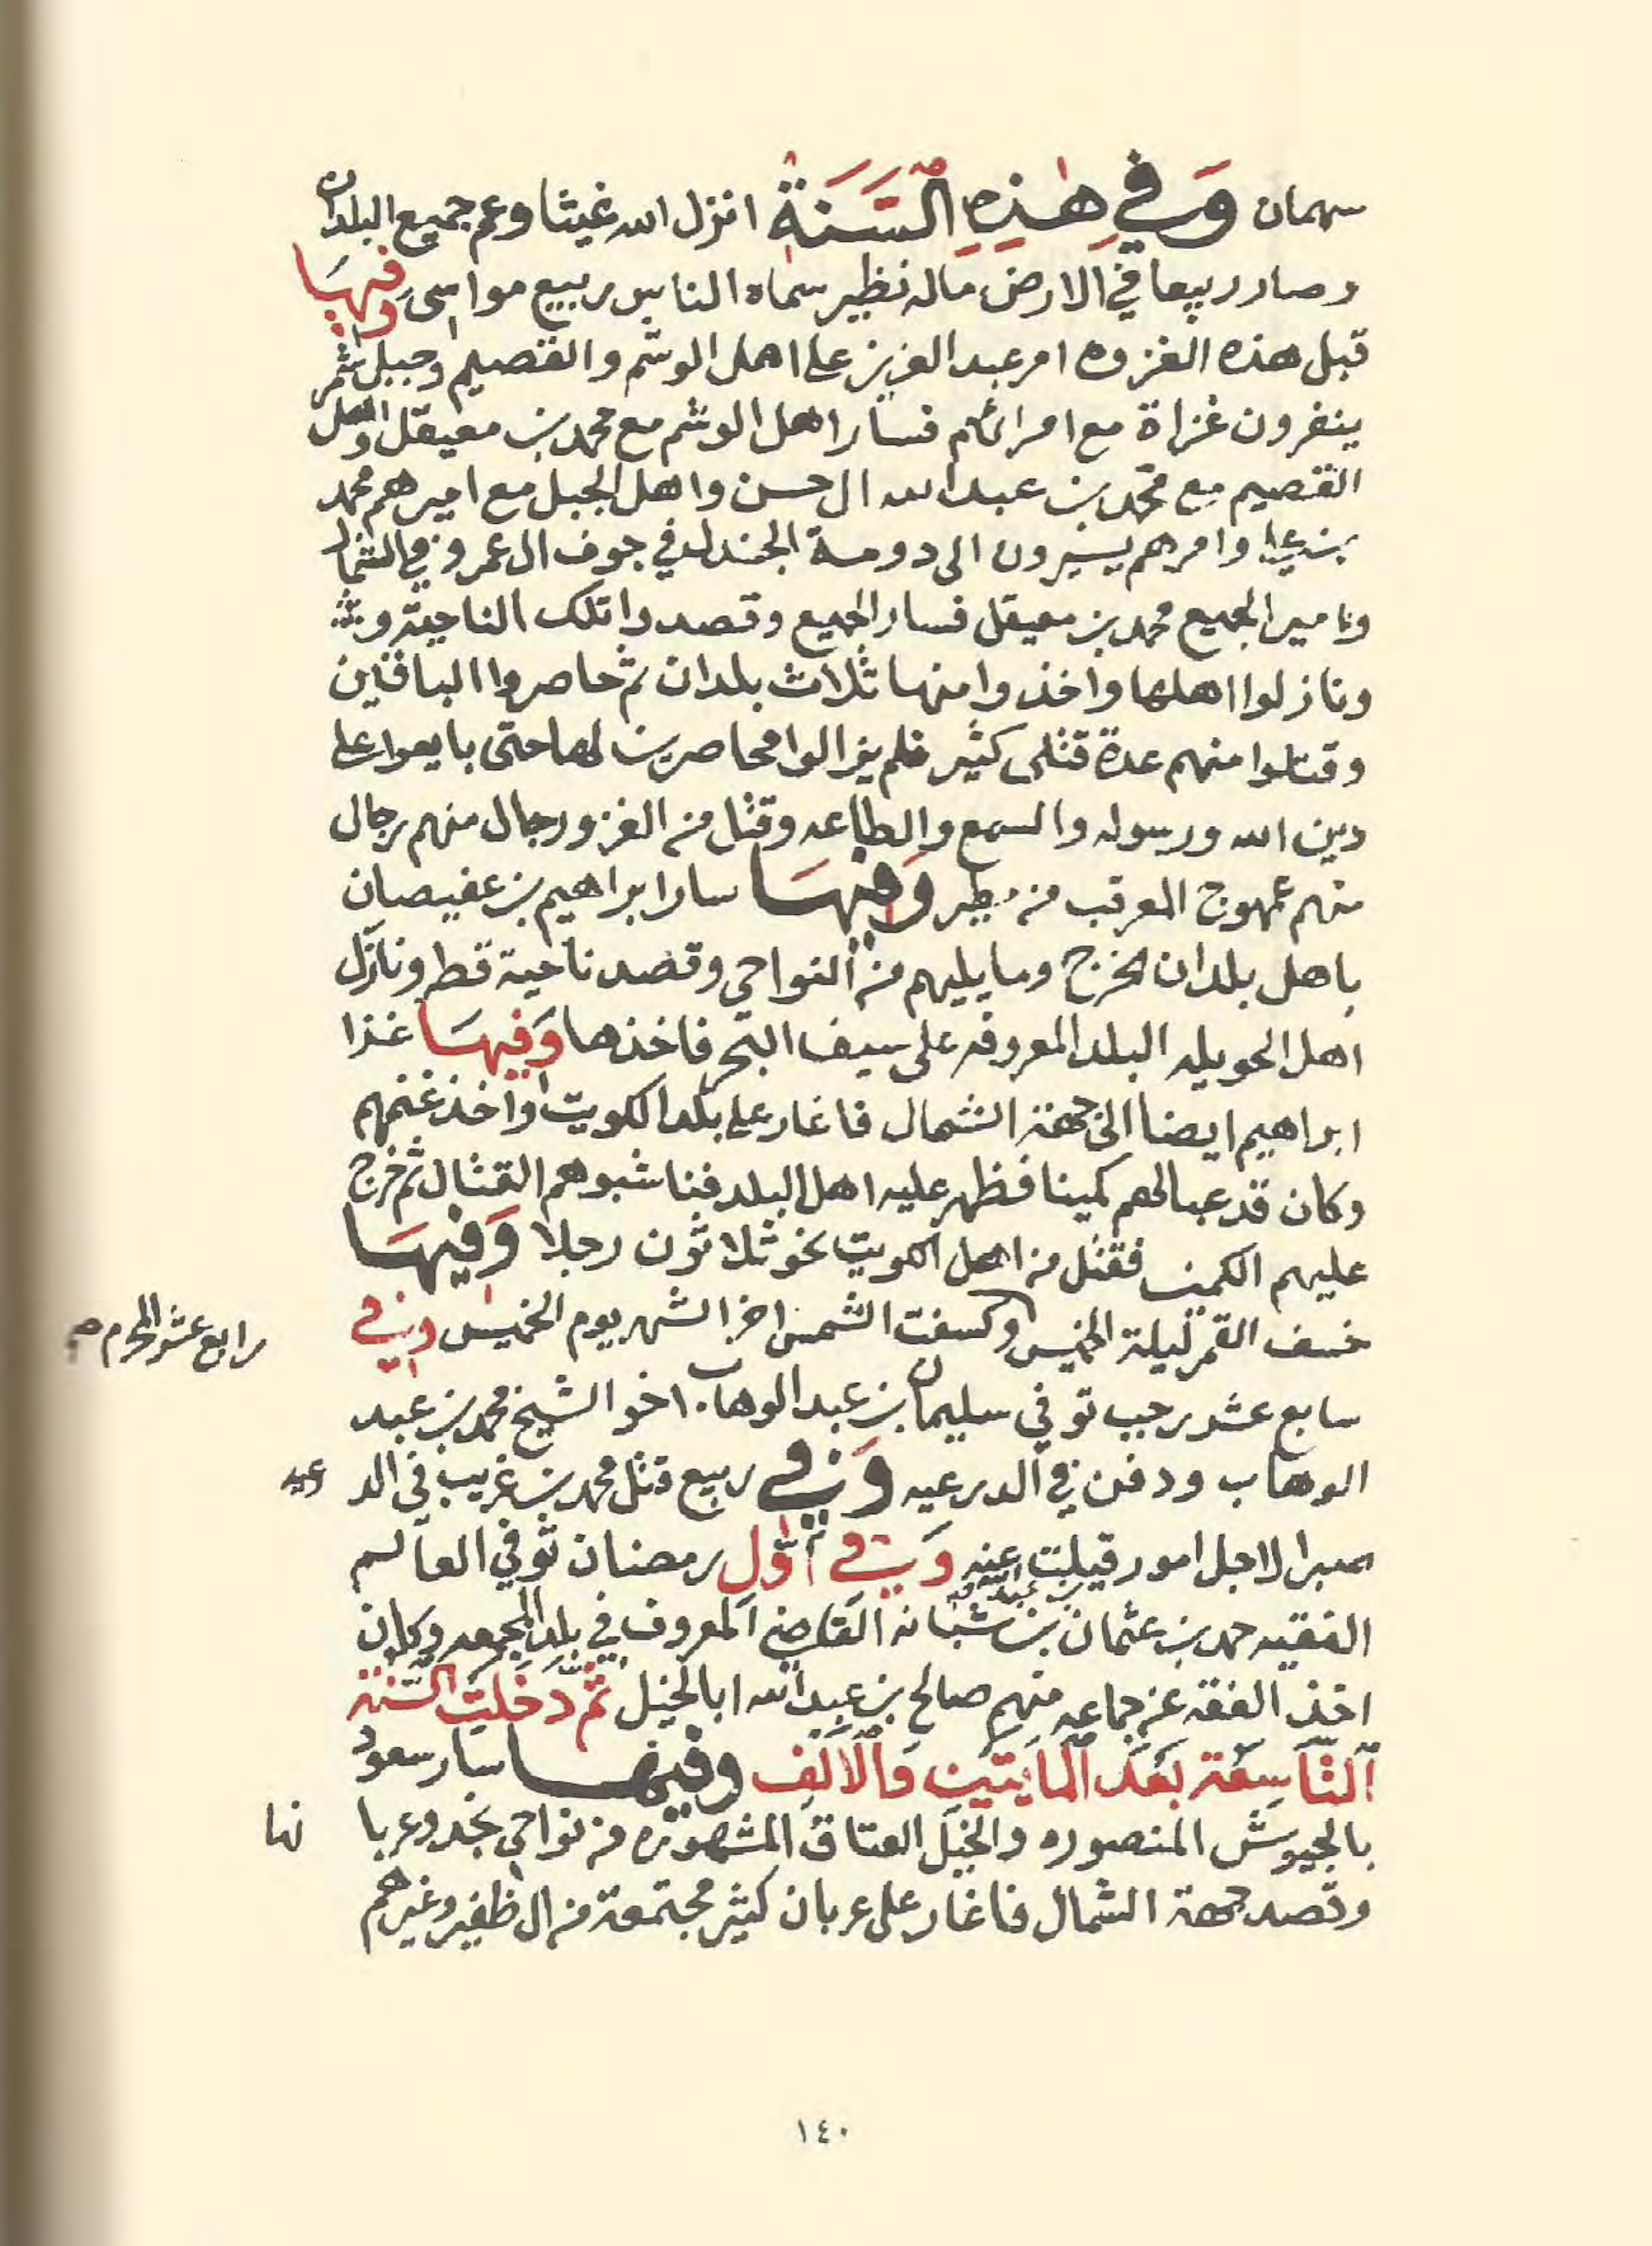 سهمان وَفي هٰذِهِ السَّنَةُ انزل الله غيثا وعم جميع البلدان
وصار ربيعا في الارض ماله نظير سماه الناس ربيع مواسى وفيهَا
قبل هذه الغزوه امر عبد العزيز على اهل الوشم والقصيم وجبل شمر
ينفرون غزاة مع امرائهم فسار اهل الوشم مع محمد بن معيقل واهل
القصيم مع محمد بن عبد الله ال حسن واهل الجبل مع اميرهم محمد
بن علي وامرهم يسيرون الى دومة الجندل في جوف ال عمرو في الشمال
وامير الجميع محمد بن معيقل فسار الجميع وقصدوا تلك الناحية
ونازلوا اهلها واخذوا منها ثلاث بلدان ثم حاصروا الباقين
وقتلوا منهم عدة قتلى كثير فلم يزالوا محاصرين لها حتى بايعوا على
دين الله ورسوله والسمع والطاعه وقتل من الغزو رجال منهم رجال
منهم عمهوج المعرقب من مطير وَفيهَا سار ابراهيم بن عفيصان
باهل بلدان الخرج وما يليهم من النواحي وقصد ناحية قطر ونازل
اهل الحويله البلد المعروفه على سيف البحر فاخذها وَفيهَا غزا
ابراهيم ايضا الى جهة الشمال فاغار على بلد الكويت واخذ غنمهم
وكان قد عبا لهم كمينا فظهر عليه اهل البلد فناشبوهم القتال ثم خرج
عليهم الكمين فقتل من اهل الكويت نحو ثلاثون رجلا وَفيهَا
خسف القمر ليلة الخميس وكسفت الشمس اخر الشهر يوم الخميس وفي
رابع عشر المحرم صح
سابع عشر رجب توفي سليمان بن عبد الوهاب اخو الشيخ محمد بن عبد
الوهاب ودفن في الدرعيه وَفي ربيع قتل محمد بن غريب في الد رعيه
صبرا لاجل امور قيلت عنه وَفي أوّل رمضان توفي العالم
الفقيه حمد بن عثمان بن عبد الله بن شبانه القاضي المعروف في بلد المجمعه وكان
اخذ الفقه عن جماعه منهم صالح بن عبد الله ابا الخيل ثُمَّ دَخَلَتِ السَّنَة
اَلتَّاسِعَة بَعْدَ المايَتَين وَالْاَلِف وفيها سار سعود
بالجيوش المنصوره والخيل العتاق المشهوره من نواحي نجد وعربا نها
وقصد جهة الشمال فاغار على عربان كثير مجتمعة من ال ظفير وغيرهم
١٤٠